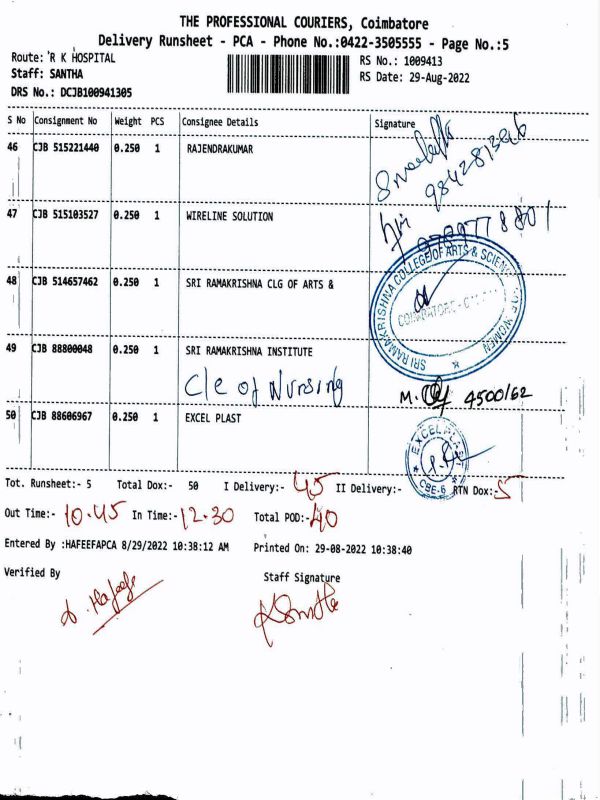 THE PROFESSIONAL COURIERS, Coimbatore
Delivery Runsheet - PCA - Phone No.:0422-3505555 - Page No.:5
Route: R K HOSPITAL
RS No.: 1009413
Staff: SANTHA
RS Date: 29-Aug-2022
DRS No.: DCJB100941305
S No Consignment No Weight PCS Consignee Details Signature
46 CJB 515221440 0.250 1 RAJENDRAKUMAR
47 CJB 515103527 0.250 1 WIRELINE SOLUTION
48 CJB 514657462 0.250 1 SRI RAMAKRISHNA CLG OF ARTS &
SRI RAMAKRISHNA COLLEGE OF ARTS & SCIENCE FOR WOMEN
49 CJB 88800048 0.250 1 SRI RAMAKRISHNA INSTITUTE
Cle of Nursing
4500/62
50 CJB 88606967 0.250 1 EXCEL PLAST
EXCEL PLAST
CBE-6
Tot. Runsheet:- 5 Total Dox:- 50 I Delivery:- 45 II Delivery:- RTN Dox:- 5
Out Time:- 10.45 In Time:- 12.30 Total POD:- 40
Entered By :HAFEEFAPCA 8/29/2022 10:38:12 AM Printed On: 29-08-2022 10:38:40
Verified By Staff Signature